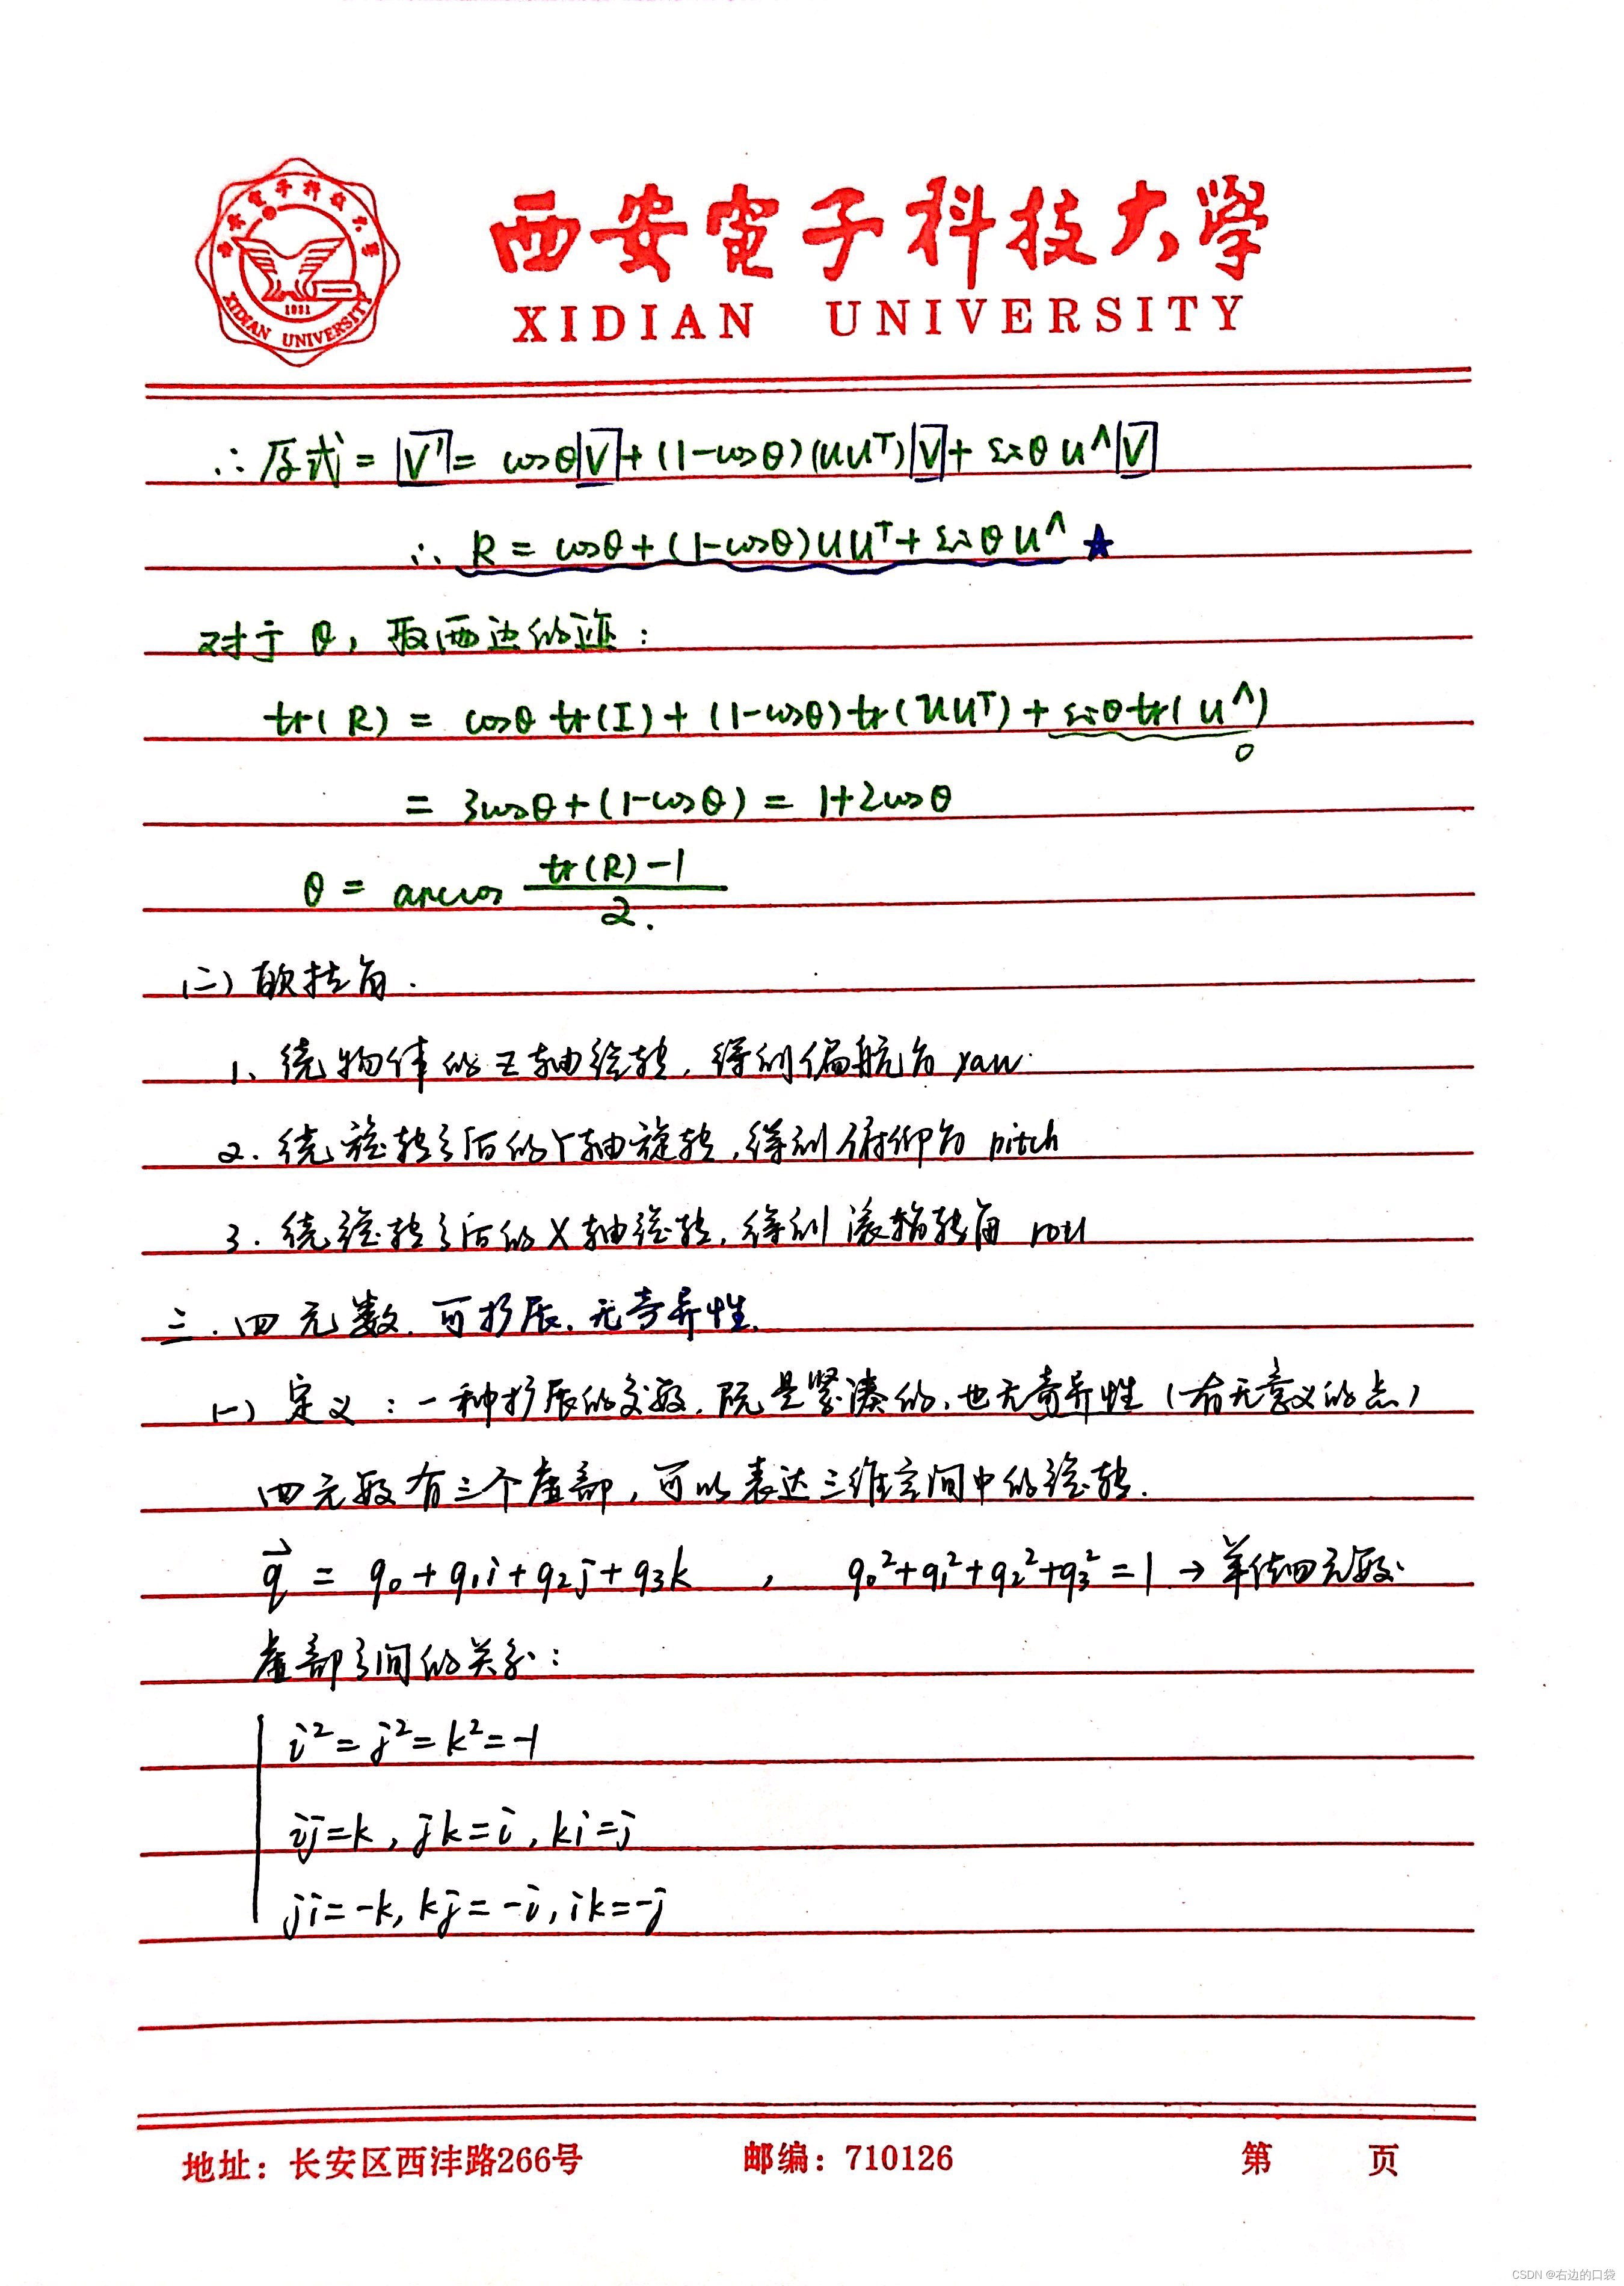 西安電子科技大學
XIDIAN UNIVERSITY
西安電子科技大學
1931
XIDIAN UNIVERSITY
∴ 原式 = V' = cosθ V + (1-cosθ)(uuᵀ) V + sinθ u^ V
∴ R = cosθ + (1-cosθ)uuᵀ + sinθ u^ ★
对于 θ, 取两边的迹:
tr(R) = cosθ tr(I) + (1-cosθ) tr(uuᵀ) + sinθ tr(u^)
0
= 3cosθ + (1-cosθ) = 1+2cosθ
θ = arccos (tr(R)-1)/2.
(二) 欧拉角.
1、绕物体的Z轴旋转, 得到偏航角 yaw.
2. 绕旋转之后的Y轴旋转, 得到俯仰角 pitch
3. 绕旋转之后的X轴旋转, 得到滚转角 roll
三. 四元数. 可扩展. 无奇异性.
(一) 定义: 一种扩展的复数. 既是紧凑的, 也无奇异性 (有无意义的点)
四元数有三个虚部, 可以表达三维空间中的旋转.
q⃗ = q₀+q₁i+q₂j+q₃k , q₀²+q₁²+q₂²+q₃²=1 → 单位四元数.
虚部之间的关系:
i²=j²=k²=-1
ij=k, jk=i, ki=j
ji=-k, kj=-i, ik=-j
地址: 长安区西沣路266号 邮编: 710126 第 页
CSDN @右边的口袋